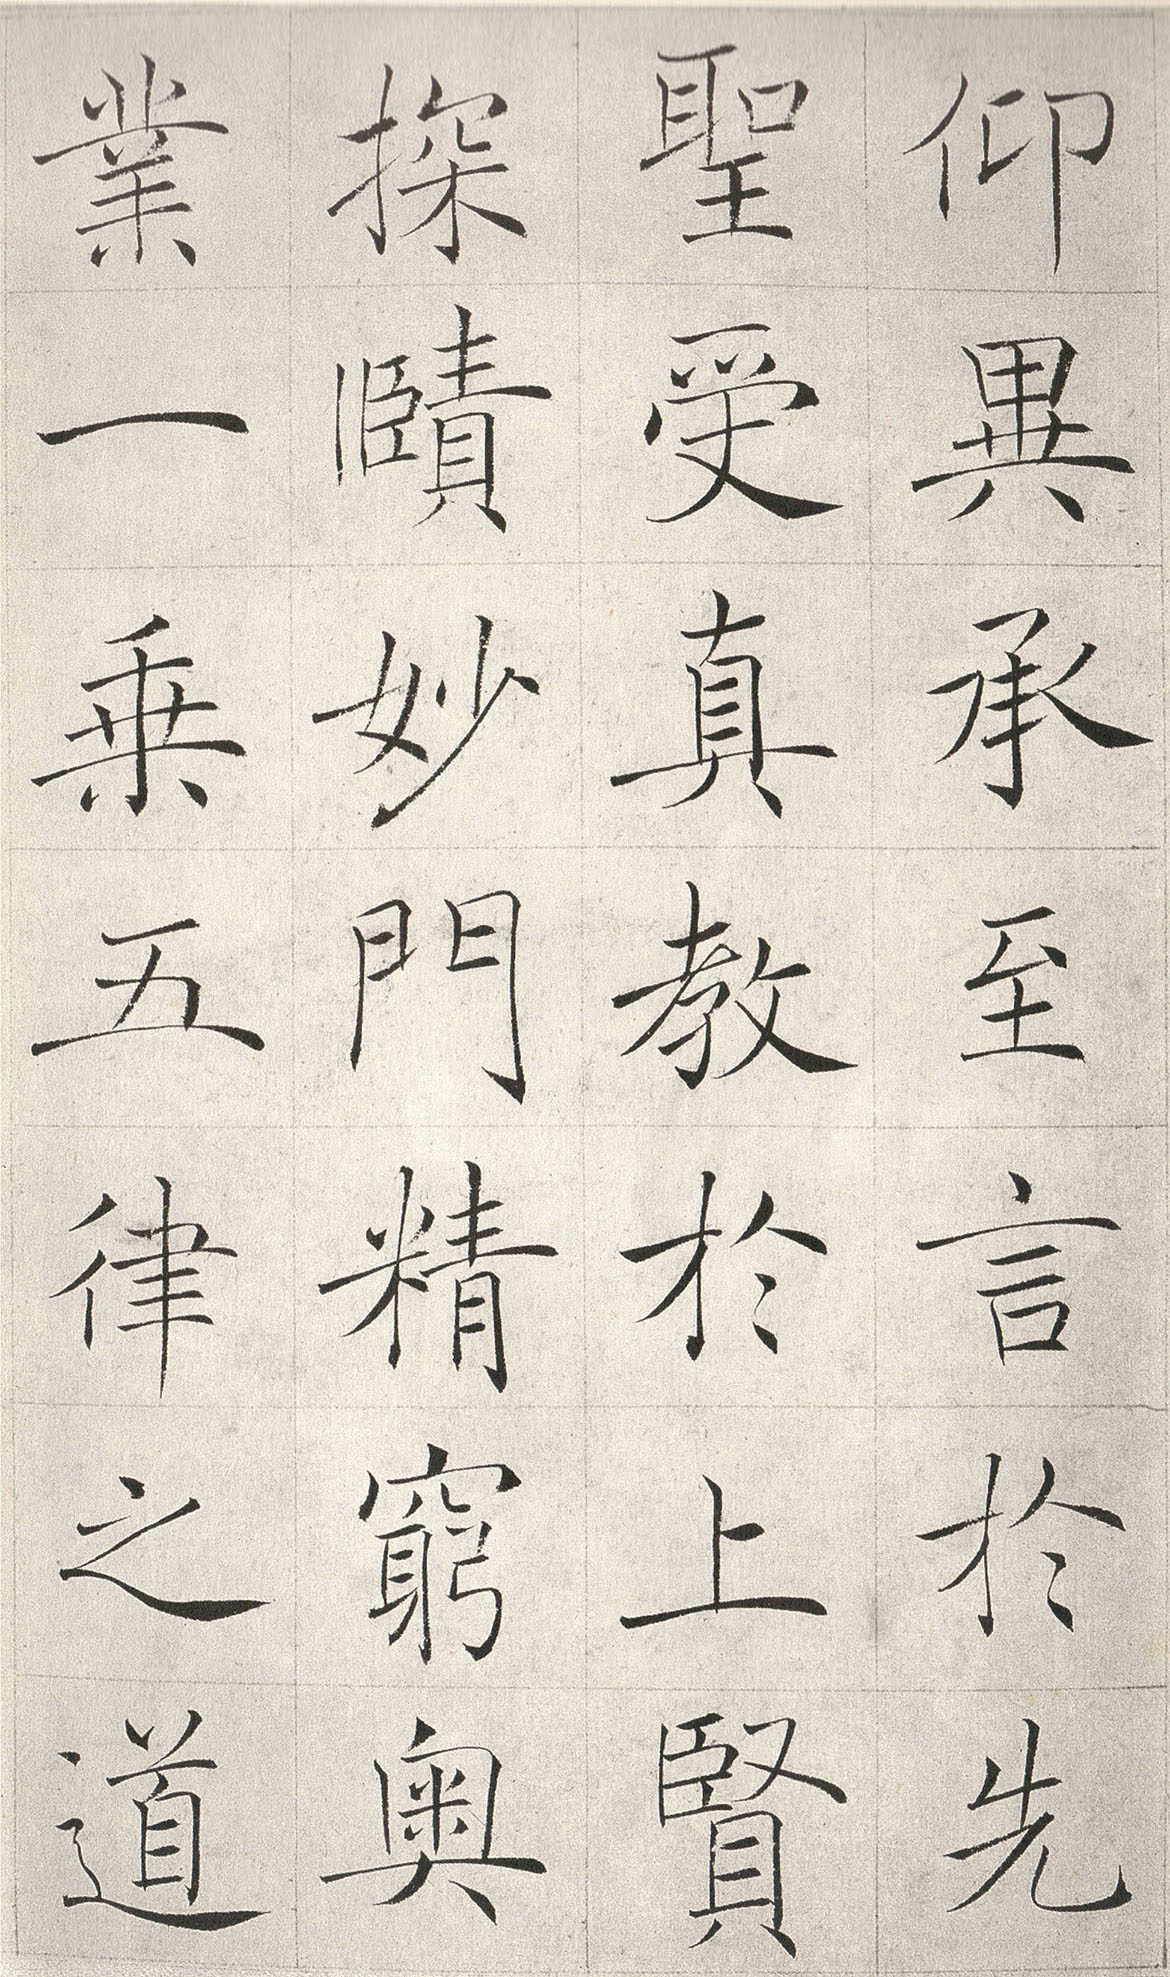 仰異承至言於先
聖受真教於上賢
探賾妙門精窮奧
業一乗五律之道